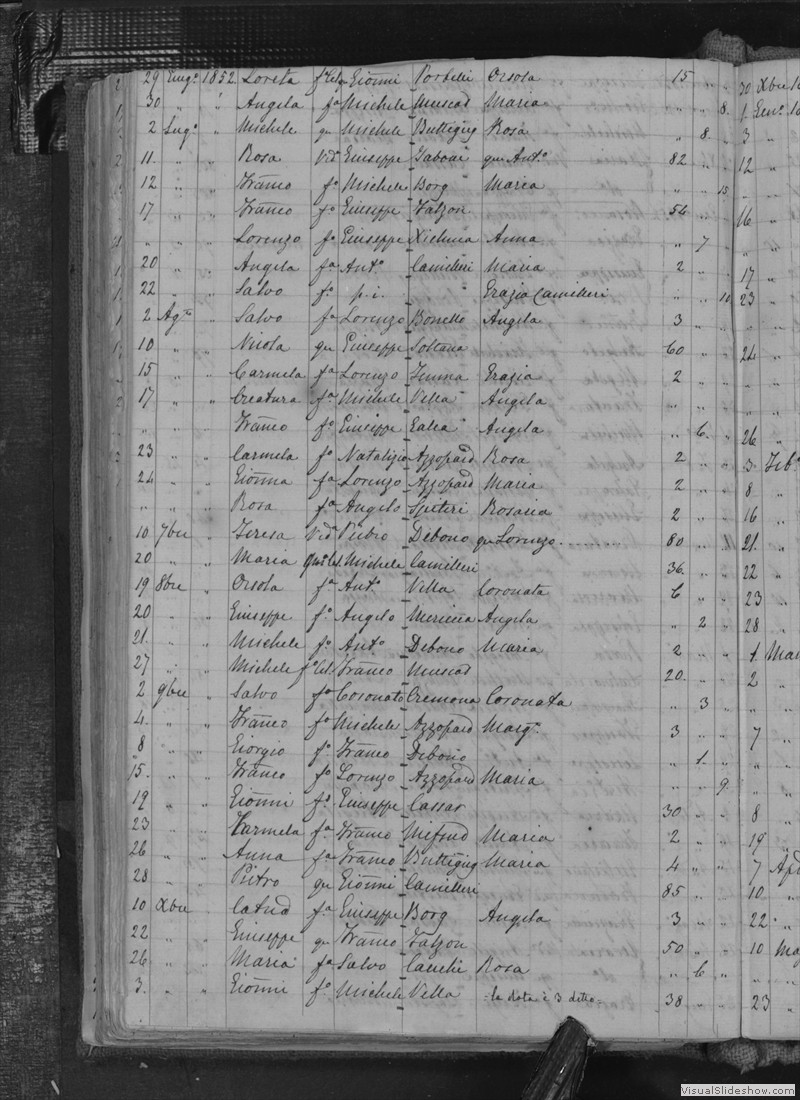 29 Giug.o 1852 Loreta f.a Cel. Gionni Portelli Orsola 15 " "
30 " " Angela f.a Michele Muscad Maria " " 8
2 Lug.o " Michele qu Michele Buttigieg Rosa " 8 "
11 " " Rosa Ved.a Giuseppe qu Ant.o 82 " "
12 " " Franco f.o Michele Borg Maria " " 15
17 " " Franco f.o Giuseppe Falzon 54 " "
" " " Lorenzo f.o Giuseppe Xicluna Anna " 7 "
20 " " Angela f.a Ant.o Camilleri Maria 2 " "
22 " " Salvo f.o p.i. " Grazia Camilleri " " 10
2 Ag.to " Salvo f.o Lorenzo Bonello Angela 3 " "
10 " " Nicola qu Giuseppe Soltana 60 " "
15 " " Carmela f.a Lorenzo Grazia 2 " "
17 " " Creatura f.a Michele Vella Angela " " "
" " " Franco f.o Giuseppe Galea Angela " 6 "
23 " " Carmela f.a Natalizio Azzopard Rosa 2 " "
24 " " Gionna f.a Lorenzo Azzopard Maria 2 " "
" " " Rosa f.a Angelo Spiteri Rosaria 2 " "
10 7bre " Teresa Ved.a Debono qu Lorenzo 80 " "
20 " " Maria Michele Camilleri 36 " "
19 8bre " Orsola f.a Ant.o Vella Coronata 6 " "
20 " " Giuseppe f.o Angelo Mericca Angela " 2 "
21 " " Michele f.o Ant.o Debono Maria 2 " "
27 " " Michele f.o Cel. Franco Muscad 20 " "
2 9bre " Salvo f.o Coronato Cremona Coronata " 3 "
4 " " Franco f.o Michele Azzopard Marg.a 3 " "
8 " " Giorgio f.o Franco Debono " 1 "
15 " " Franco f.o Lorenzo Azzopard Maria " " 9
19 " " Gionni f.o Giuseppe Cassar 30 " "
23 " " Karmela f.a Franco Mifsud Maria 2 " "
26 " " Anna f.a Franco Buttigieg Maria 4 " "
28 " " Pietro qu Gionni Camilleri 85 " "
10 Xbre " Catnd f.a Giuseppe Borg Angela 3 " "
22 " " Giuseppe qu Franco Falzon 50 " "
26 " " Maria f.a Salvo Rosa " 6 "
3 " " Gionni f.o Michele Vella - la data è 3 detto - 38 " "
30 Xbre
1 Gen.o
3 "
12 "
" "
16 "
" "
17 "
23 "
" "
24 "
" "
" "
26 "
3 Feb
8 "
16 "
21 "
22 "
23 "
28 "
1 Mar
2 "
" "
7 "
" "
" "
8 "
19 "
7 Apr
10 "
22 "
10 Mag
" "
23 "
VisualSlideshow.com